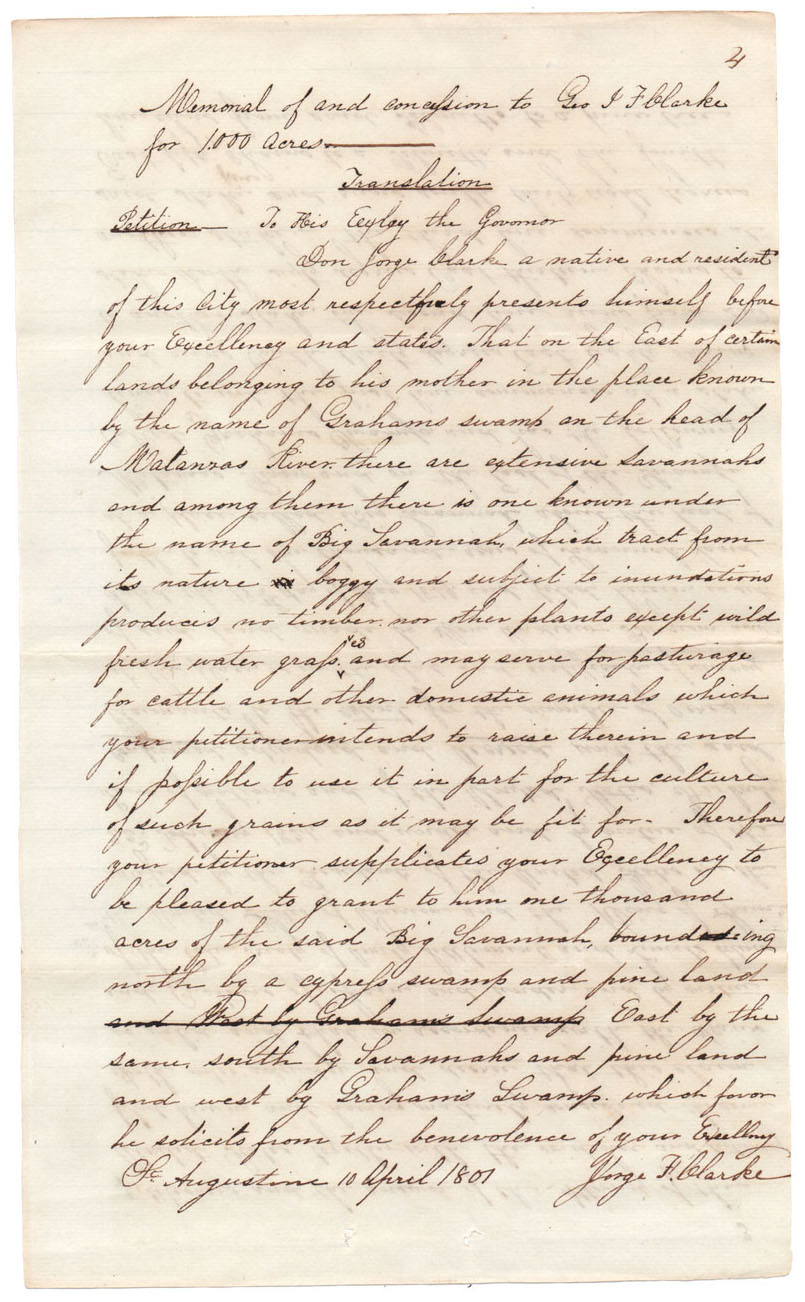 4
Memorial of and concession to Geo J F Clarke
for 1.000 acres.
Translation
Petition — To His Exley the Govornor
Don Jorge Clark a native and resident
of this City most respectfuly presents himself before
your Excellency and states. That on the East of certain
lands belonging to his mother in the place known
by the name of Grahams swamp on the head of
Matanzas River. there are extensive Savannahs
and among them there is one known under
the name of Big Savannah, which tract from
its nature is boggy and subject to inundations
produces no timber. nor other plants except wild
fresh water grasses and may serve for pasturage
for cattle and other domestic animals which
your petitioner intends to raise therein and
if possible to use it in part for the culture
of such grains as it may be fit for - Therefore
your petitioner supplicates your Excellency to
be pleased to grant to him one thousand
acres of the said Big Savannah, bounding
north by a cypress swamp and pine land
and West by Grahams Swamp East by the
same, south by Savannahs and pine land
and west by Graham's Swamp. which favor
he solicits from the benevolence of your Excellny
St Augustine 10 April 1801 Jorge F. Clarke